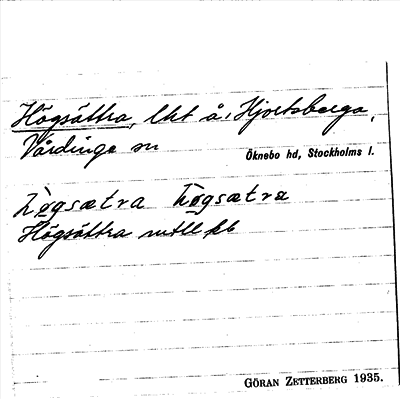 Högsättra, lht å, Hjortsberga,
Vårdinge sn
Öknebo hd, Stockholms l.
hògsætra hògsætra
Högsättra mtll kb
GÖRAN ZETTERBERG 1935.